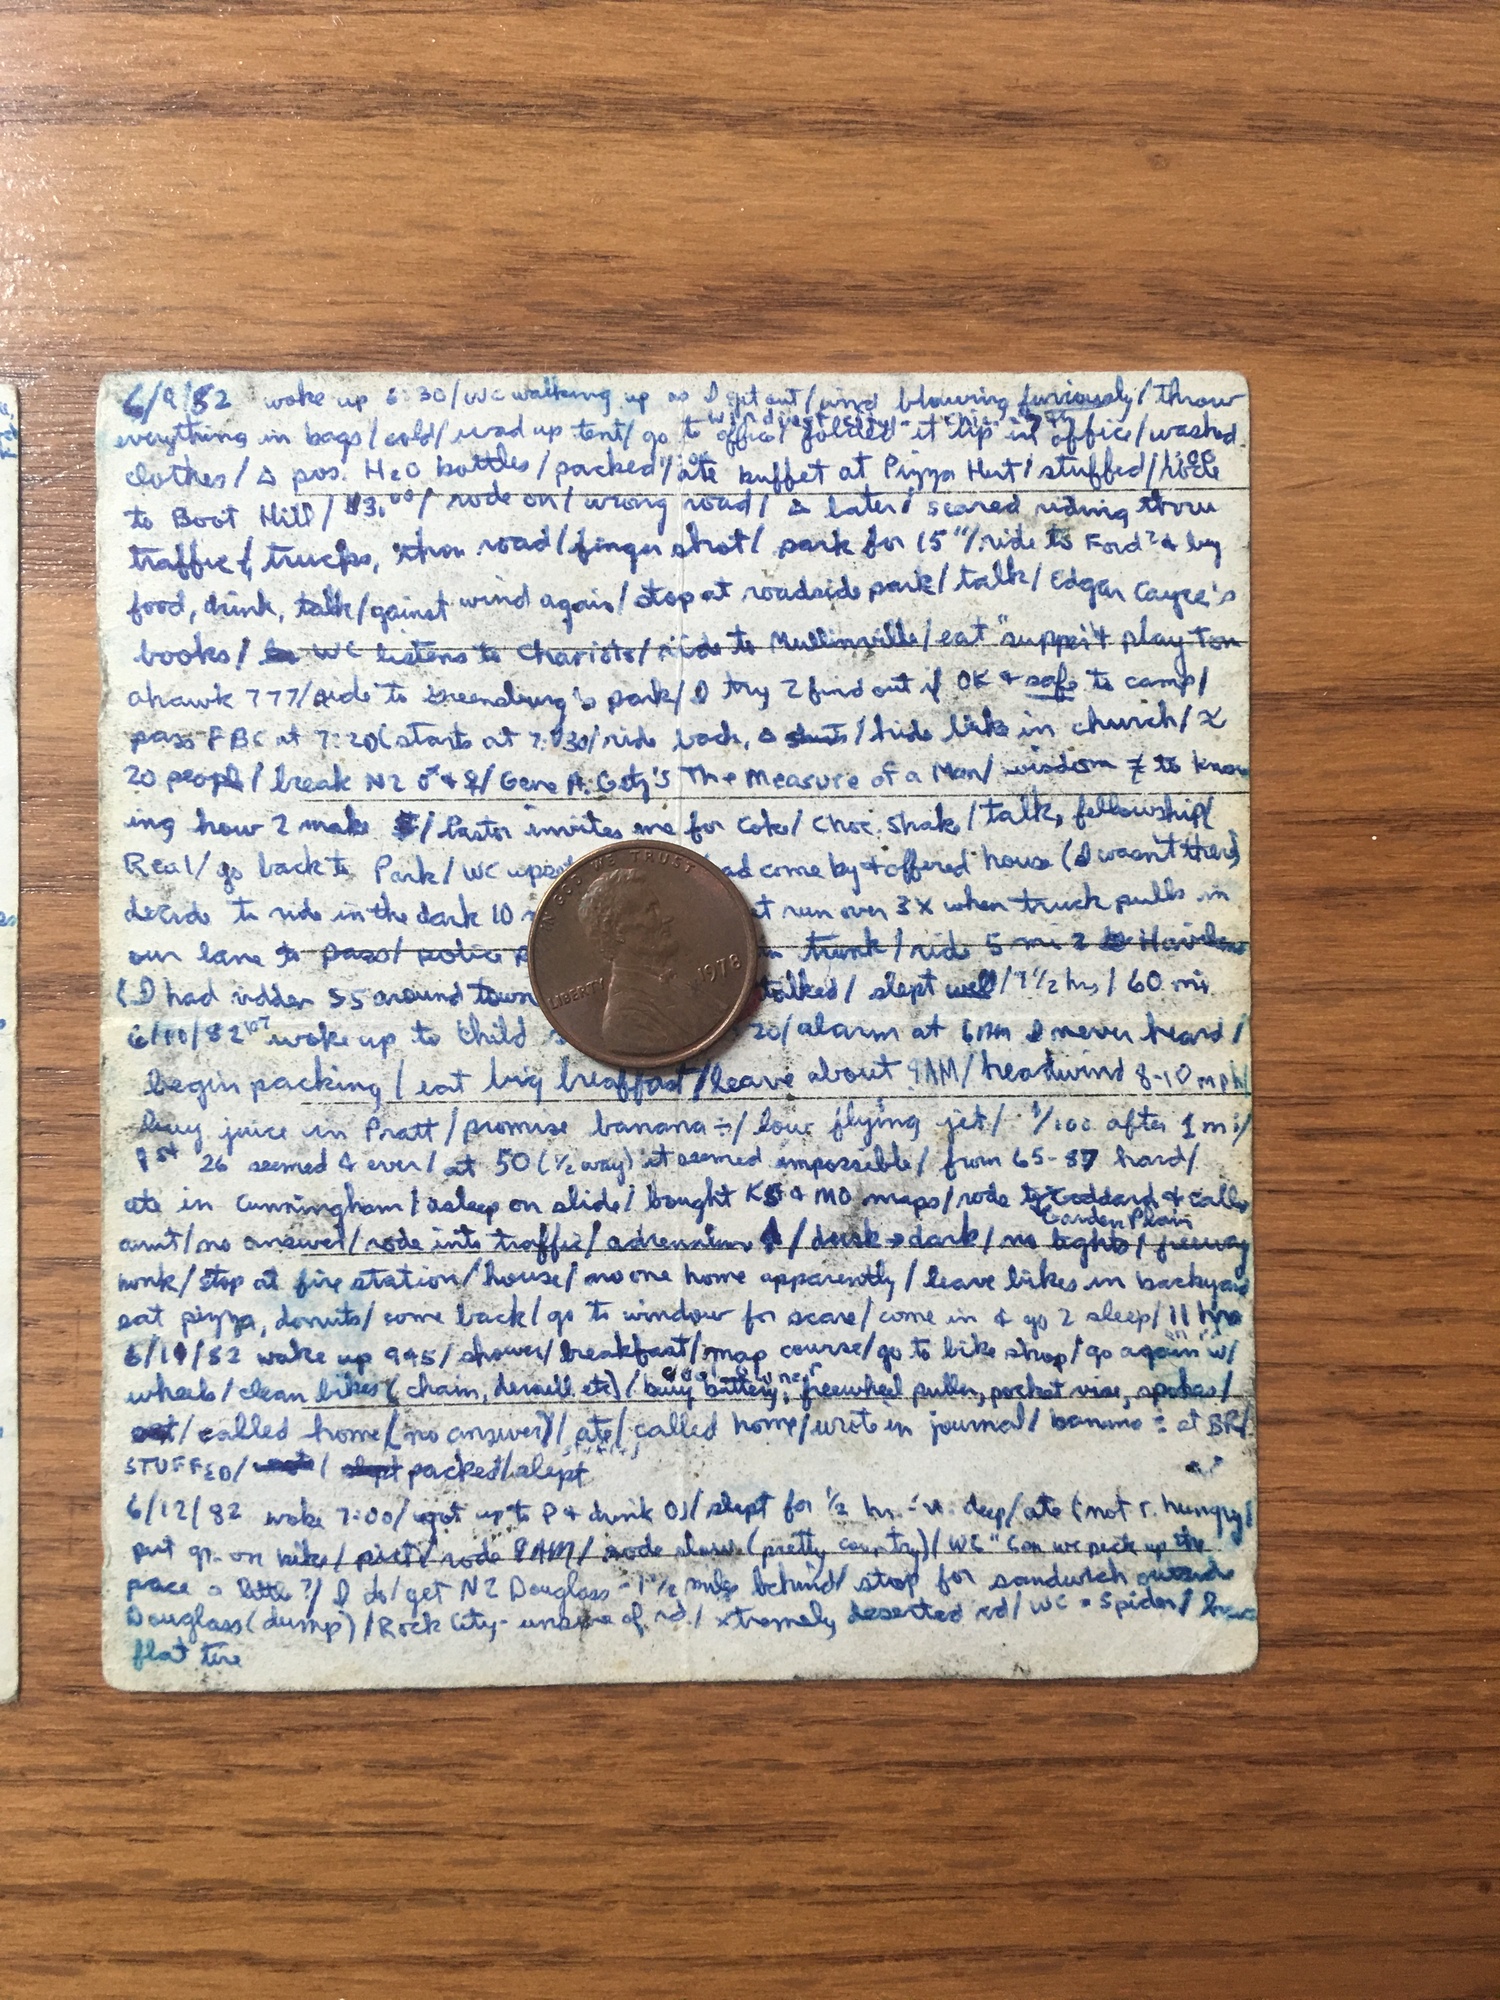 6/9/82 woke up 6:30/WC walking up as I get out/wind blowing furiously/throw
windiest city - Chic. = 7th
everything in bags/cold/wad up tent/go to office/folded it up in office/washed
clothes/Δ pos. H2O bottles/packed/ate buffet at Pizza Hut/stuffed/rode
to Boot Hill/$3.00/rode on/wrong road/Δ later/scared riding thru
traffic & trucks, then road/finger shot/park for 15"/ride to Ford & buy
food, drink, talk/gainst wind again/stop at roadside park/talk/Edgar Cayce's
books/WC listens to Chariots/ride to Mullinville/eat "supper" & play Tom
ahawk 777/ride to Greensburg's park/I try 2 find out if OK & safe to camp/
pass FBC at 7:20(starts at 7:30/ride back, Δ shirts/hide bike in church/≈
20 people/break N2 ♂ & ♀/Gene A. Getz's The Measure of a Man/wisdom ≠ to know
ing how 2 make $/Pastor invites me for Coke/Choc. Shake/talk, fellowship/
Real/go back to Park/WC ad come by & offered house (I wasn't there)
decide to ride in the dark 10 et run over 3X when truck pulls in
our lane to pass/police trunk/ride 5 mi 2 Haviland
(I had ridden 55 around town talked/slept well/7 1/2 hrs/60 mi
6/10/82 107 woke up to child 20/alarm at 6AM I never heard/
begin packing/eat big breaffast/leave about 9AM/headwind 8-10 mph/
buy juice in Pratt/promise banana ÷/low flying jet/1/100 after 1 mi/
1st 26 seemed 4 ever/at 50 (1/2 way) it seemed impossible/from 65-87 hard/
ate in Cunningham/asleep on slide/bought KS & MO maps/rode to Goddard & calls
Garden Plain
aunt/no answer/rode into traffic/adrenalin ↑/dusk→dark/no lights/freeway
honk/stop at fire station/house/no one home apparently/leave bikes in backyard
eat pizza, donuts/come back/go to window for scare/come in & go 2 sleep/11 hrs
6/11/82 wake up 945/shower/breakfast/map course/go to bike shop/go again w/
wheels/clean bikes (chain, deraill. etc)/buy battery, freewheel puller, pocket vise, spokes/
called home (no answer)/ate/called home/wrote in journal/banana ÷ at BR/
STUFFED/packed/slept
6/12/82 woke 7:00/got up to P & drink OJ/slept for 1/2 hr. deep/ate (not r. hungry)
put gr. on bike/rode 9AM/rode slow (pretty country)/WC "Can we pick up the
pace a little?/I do/get N2 Douglass - 1 1/2 miles behind/stop for sandwich outside
Douglass(dump)/Rock City - unsure of rd./xtremely deserted rd/WC = Spider/have
flat tire
IN GOD WE TRUST
LIBERTY
1978